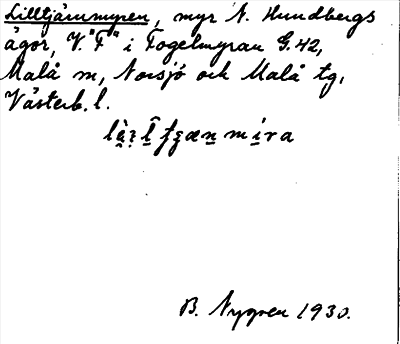 Lilltjärnmyren, myr N. Hundbergs
ägor, V. "F" i Fogelmyran G.42,
Malå sn, Norsjö och Malå tg,
Västerb. l.
B. Nygren 1930.